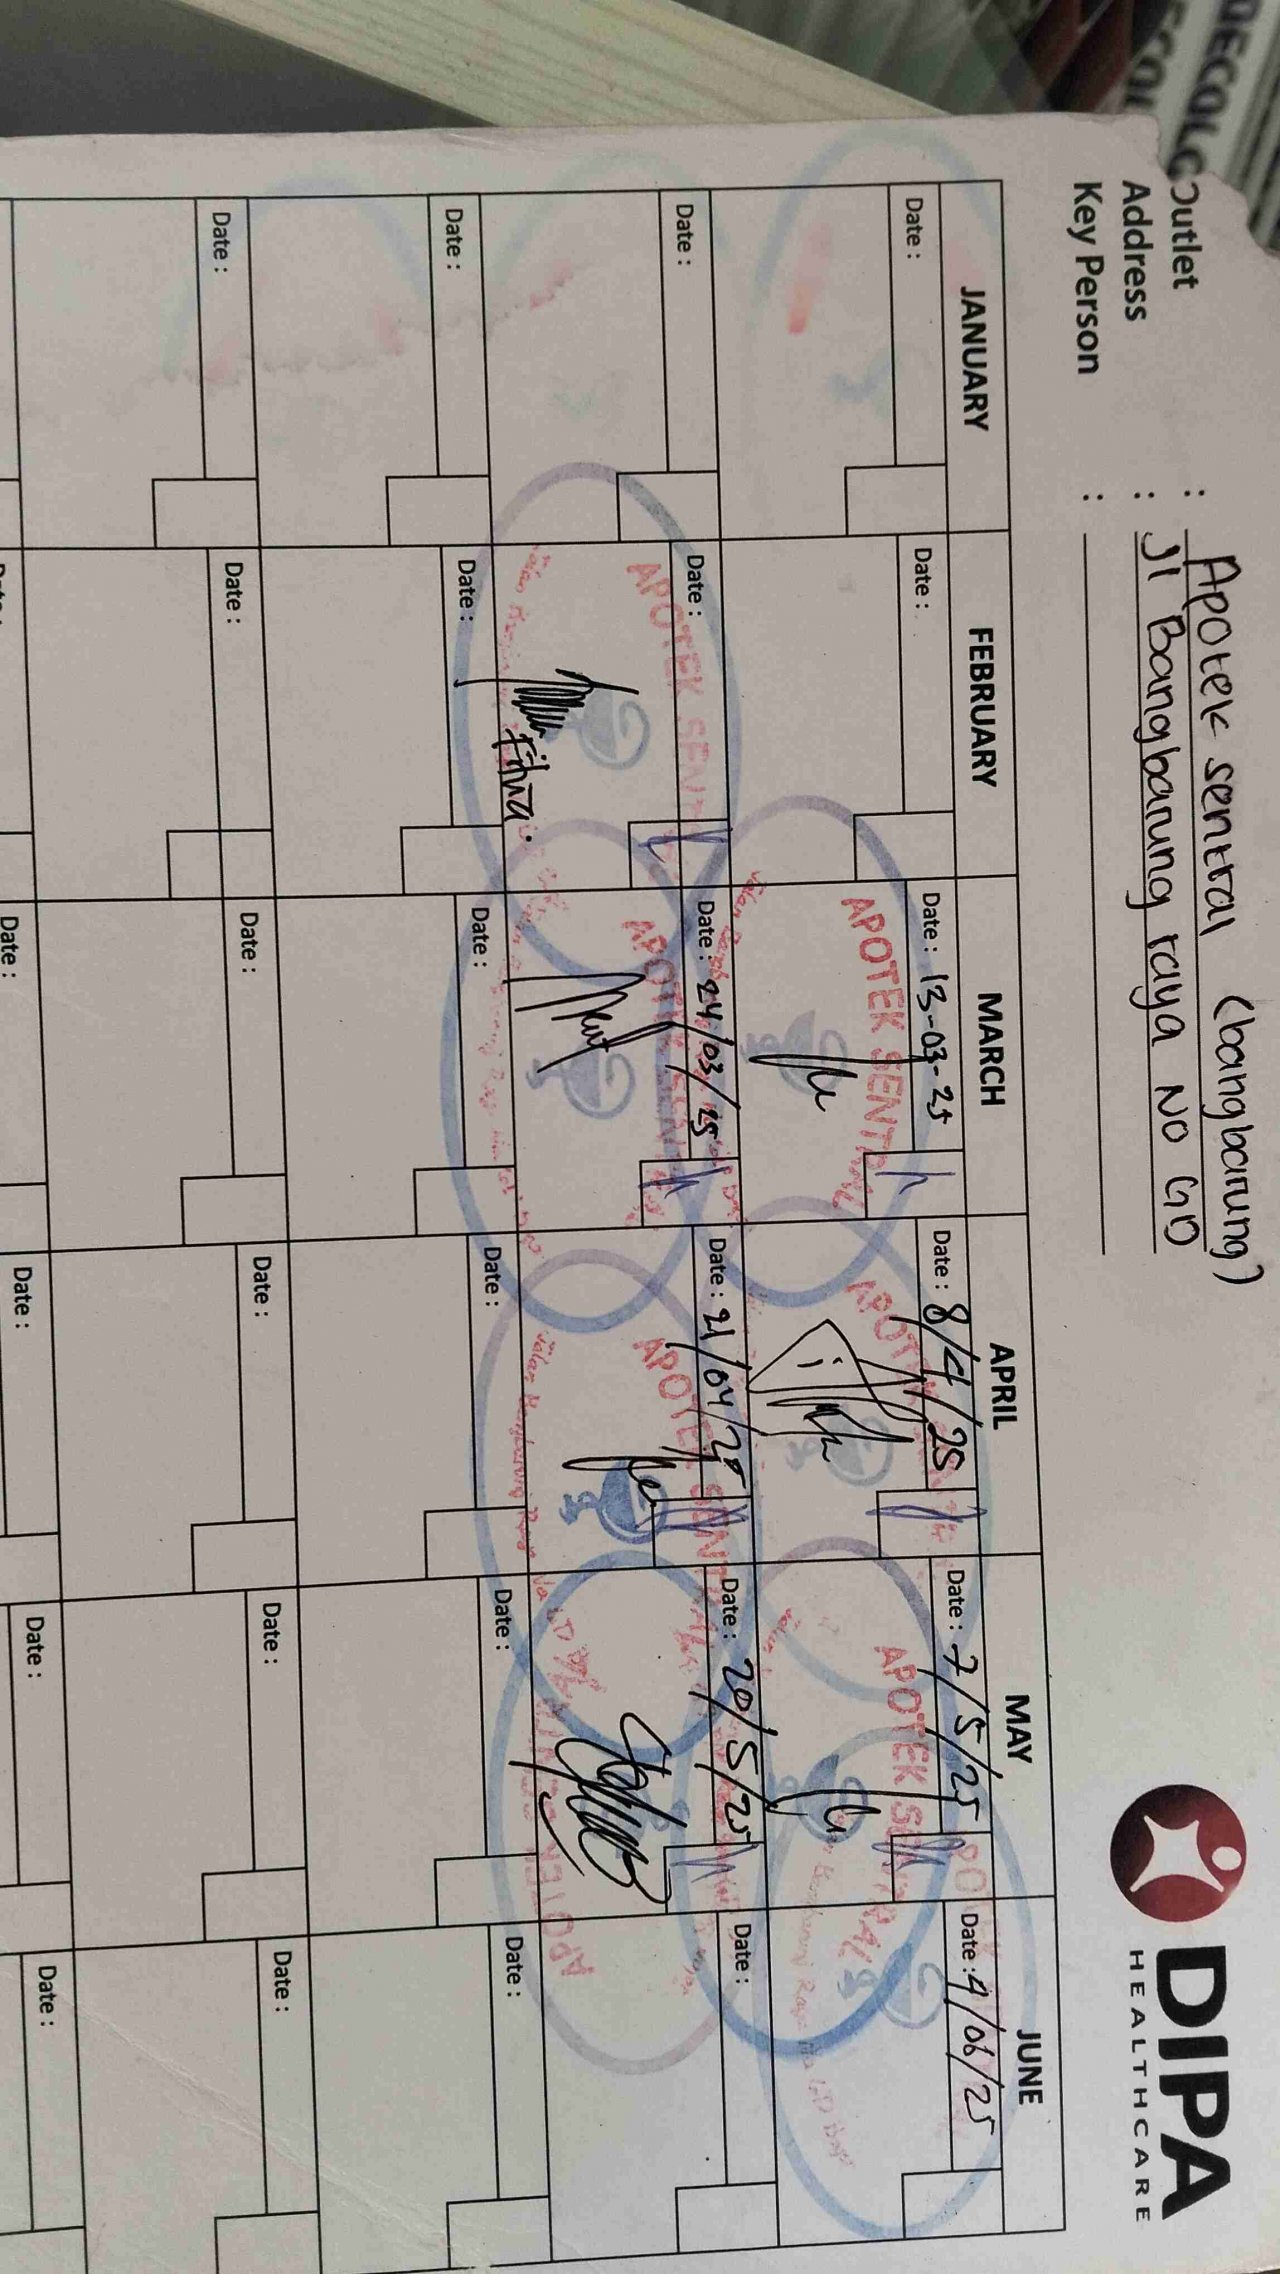 DECOLG
ECOL
Outlet : Apotek sentral (bangbarung)
Address : Jl Bangbarung raya No GD
Key Person :
DIPA
HEALTHCARE
JANUARY FEBRUARY MARCH APRIL MAY JUNE
Date : Date : Date : 13-03-25 Date : 8/4/25 Date : 7/5/25 Date : 4/06/25
APOTEK SENTRAL APOTEK APOTEK
Date : Date : Date : 24/03/25 Date : 21/04/25 Date : 20/5/25 Date :
APOTEK SENT APOTEK SEN APOTEK SENT
Fitria.
APOTEK
Date : Date : Date : Date : Date : Date :
Date : Date : Date : Date : Date : Date :
Date : Date : Date : Date :